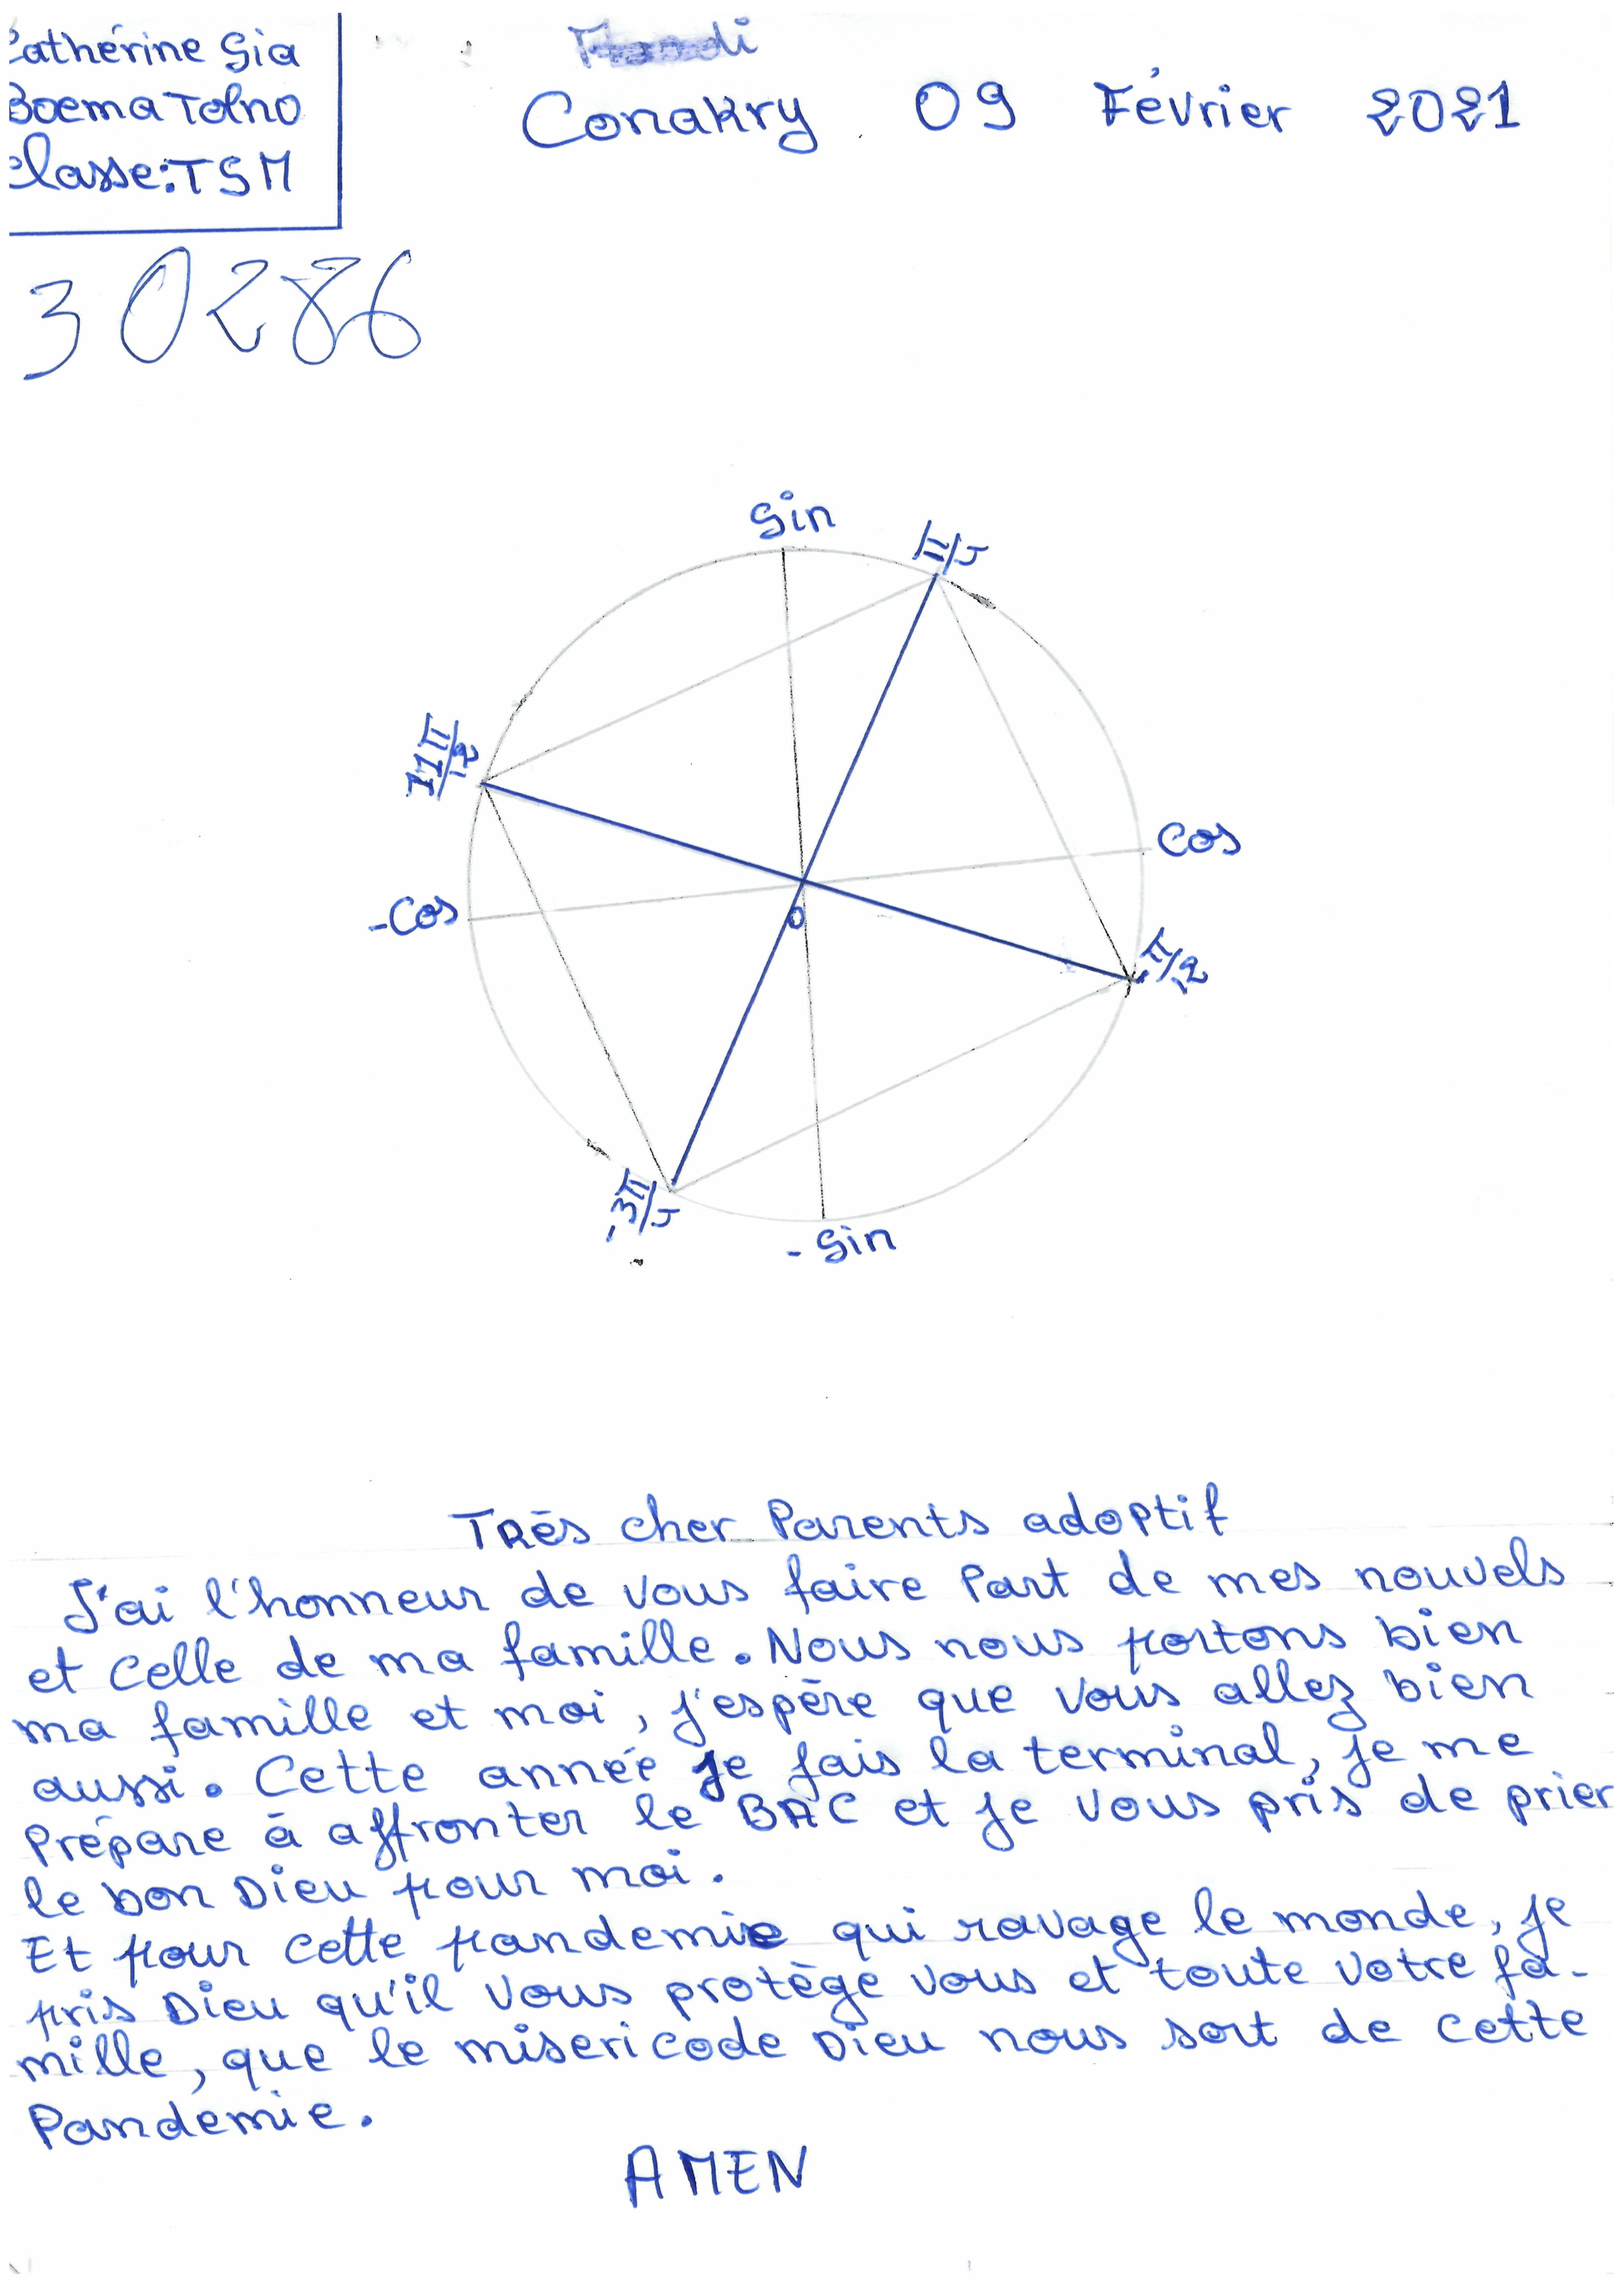 Catherine Sia
Boema Tolno
Classe: TSM
Conakry 09 Février 2021
30286
Sin
π/5
11π/12
Cos
-Cos
0
π/12
-3π/5
- Sin
Très cher Parents adoptif
J'ai l'honneur de vous faire Part de mes nouvels
et celle de ma famille. Nous nous portons bien
ma famille et moi, j'espère que vous allez bien
aussi. Cette année je fais la terminal, je me
Prépare à affronter le BAC et je vous pris de prier
le bon Dieu pour moi.
Et pour cette pandemie qui ravage le monde, je
pris Dieu qu'il vous protège vous et toute votre fa-
mille, que le misericode Dieu nous sort de cette
Pandemie.
AMEN